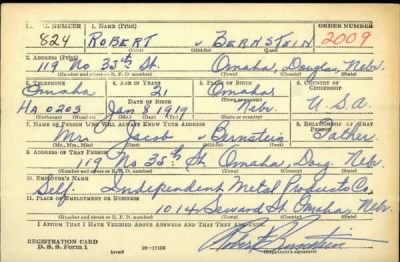 SERIAL NUMBER 1. NAME (Print) ORDER NUMBER
824 ROBERT - BERNSTEIN 2009
(First) (Middle) (Last)
2. ADDRESS (Print)
119 No 35th St. Omaha, Douglas, Nebr.
(Number and street or R. F. D. number) (Town) (County) (State)
3. TELEPHONE 4. AGE IN YEARS 5. PLACE OF BIRTH 6. COUNTRY OF CITIZENSHIP
Omaha 21 Omaha
DATE OF BIRTH
HA 0203 Jan 8 1919 Nebr. U.S.A.
(Exchange) (Number) (Mo.) (Day) (Yr.) (State or country)
7. NAME OF PERSON WHO WILL ALWAYS KNOW YOUR ADDRESS 8. RELATIONSHIP OF THAT PERSON
Mr. Jacob - Bernstein Father
(Mr., Mrs., Miss) (First) (Middle) (Last)
9. ADDRESS OF THAT PERSON
119 No 35th St Omaha, Doug. Nebr.
(Number and street or R. F. D. number) (Town) (County) (State)
10. EMPLOYER'S NAME
Self. Independent Metal Products Co.
11. PLACE OF EMPLOYMENT OR BUSINESS
1014 Seward St. Omaha, Nebr.
(Number and street or R. F. D. number) (Town) (County) (State)
I AFFIRM THAT I HAVE VERIFIED ABOVE ANSWERS AND THAT THEY ARE TRUE.
REGISTRATION CARD
D. S. S. Form 1 16-17105 Robert Bernstein
(Registrant's signature)